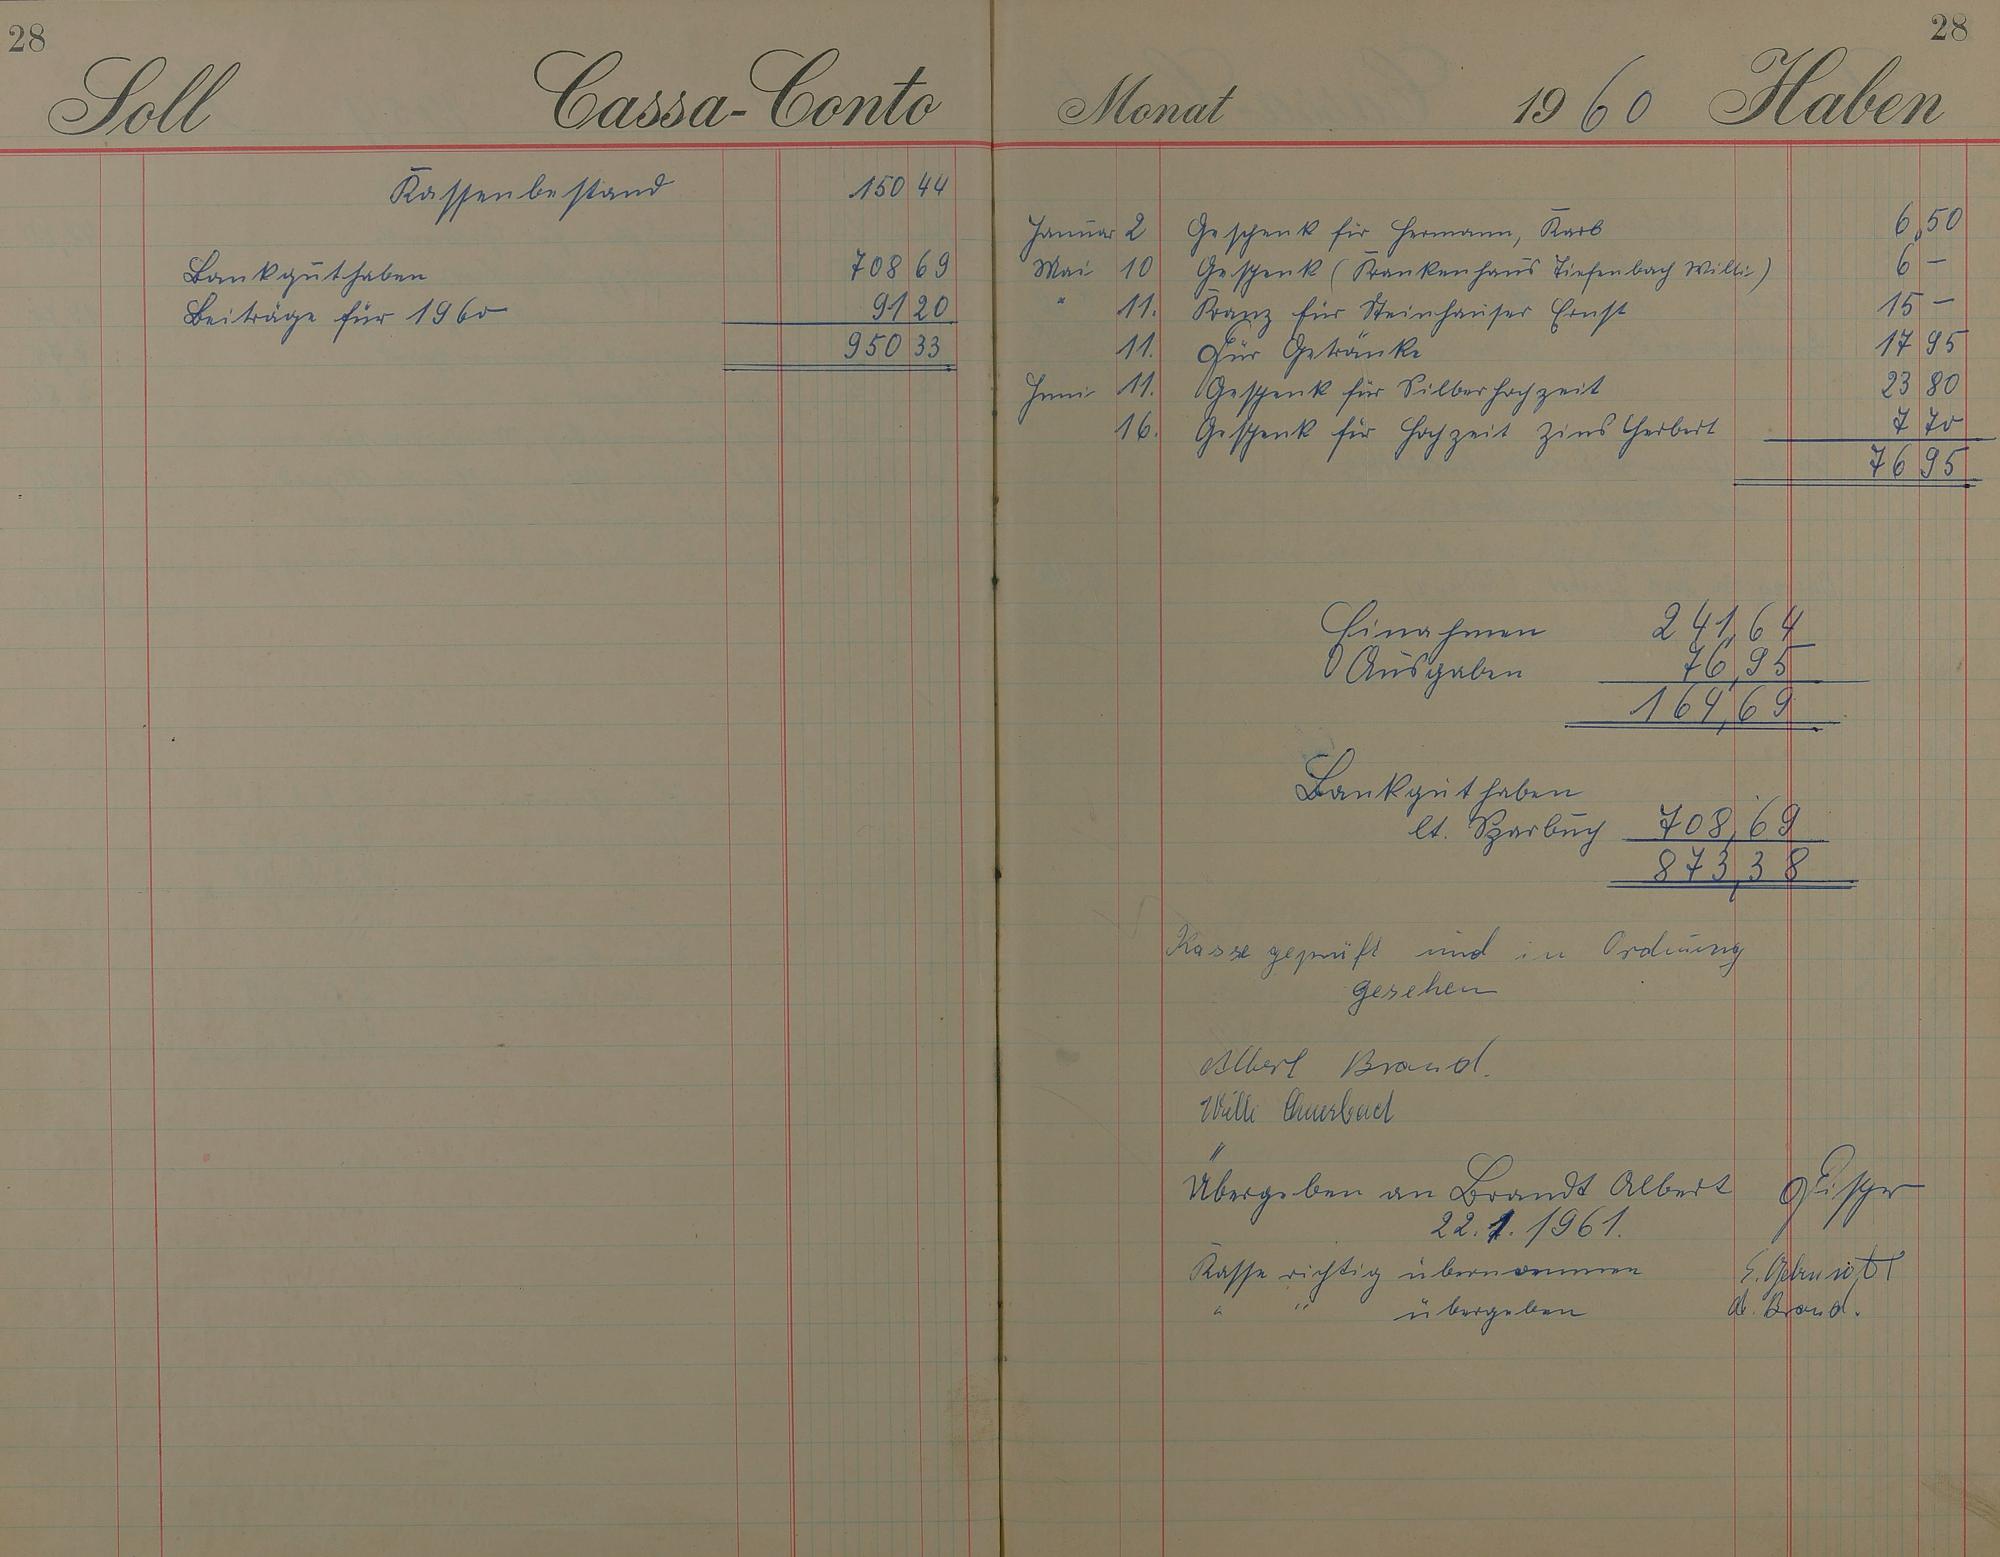 28
Soll Cassa-Conto
Kassenbestand 150 44
Bankguthaben 708 69
Beiträge für 1960 91 20
950 33
28
Monat 1960 Haben
Januar 2 Geschenk für Hermann, Karb 6,50
Mai 10 Geschenk (Krankenhaus Tiefenbach Willi) 6 –
" 11. Kranz für Steinhauser Ernst 15 –
11. Für Getränke 17 95
Juni 11. Geschenk für Silberhochzeit 23 80
16. Geschenk für Hochzeit Zins Herbert 7 70
76 95
Einahmen 241,64
Ausgaben 76,95
164,69
Bankguthaben
lt. Sparbuch 708,69
873,38
Kasse geprüft und in Ordnung
gesehen
Albert Brand.
Willi Auerbach
Übergeben an Brandt Albert Fischer
22.1.1961.
Kasse richtig übernommen
" " übergeben A. Brand.